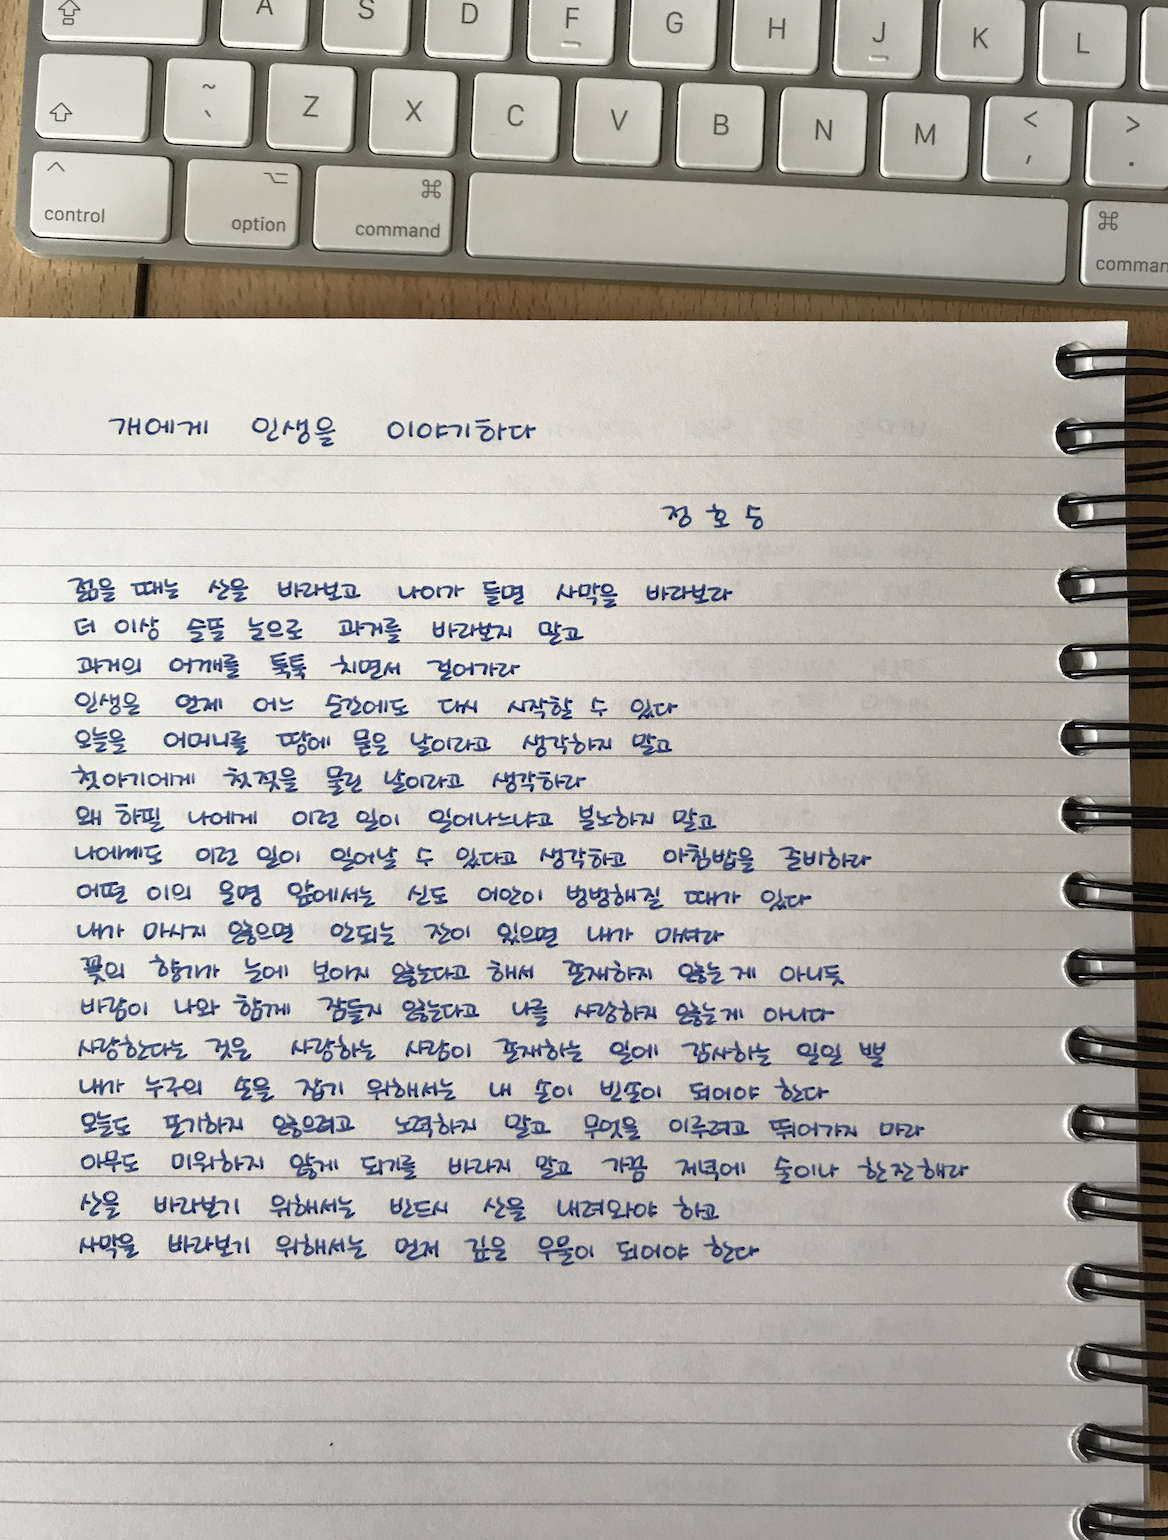 A S D F G H J K L
~ ` Z X C V B N M < , > .
control option command comman
개에게 인생을 이야기하다
정호승
젊을 때는 산을 바라보고 나이가 들면 사막을 바라보라
더 이상 슬픈 눈으로 과거를 바라보지 말고
과거의 어깨를 툭툭 치면서 걸어가라
인생은 언제 어느 순간에도 다시 시작할 수 있다
오늘을 어머니를 땅에 묻은 날이라고 생각하지 말고
첫아기에게 첫젖을 물린 날이라고 생각하라
왜 하필 나에게 이런 일이 일어나느냐고 분노하지 말고
나에게도 이런 일이 일어날 수 있다고 생각하고 아침밥을 준비하라
어떤 이의 운명 앞에서는 신도 어안이 벙벙해질 때가 있다
내가 마시지 않으면 안되는 잔이 있으면 내가 마셔라
꽃의 향기가 눈에 보이지 않는다고 해서 존재하지 않는 게 아니듯
바람이 나와 함께 잠들지 않는다고 나를 사랑하지 않는게 아니다
사랑한다는 것은 사랑하는 사람이 존재하는 일에 감사하는 일일 뿐
내가 누구의 손을 잡기 위해서는 내 손이 빈손이 되어야 한다
오늘도 포기하지 않으려고 노력하지 말고 무엇을 이루려고 뛰어가지 마라
아무도 미워하지 않게 되기를 바라지 말고 가끔 저녁에 술이나 한잔해라
산을 바라보기 위해서는 반드시 산을 내려와야 하고
사막을 바라보기 위해서는 먼저 깊은 우물이 되어야 한다